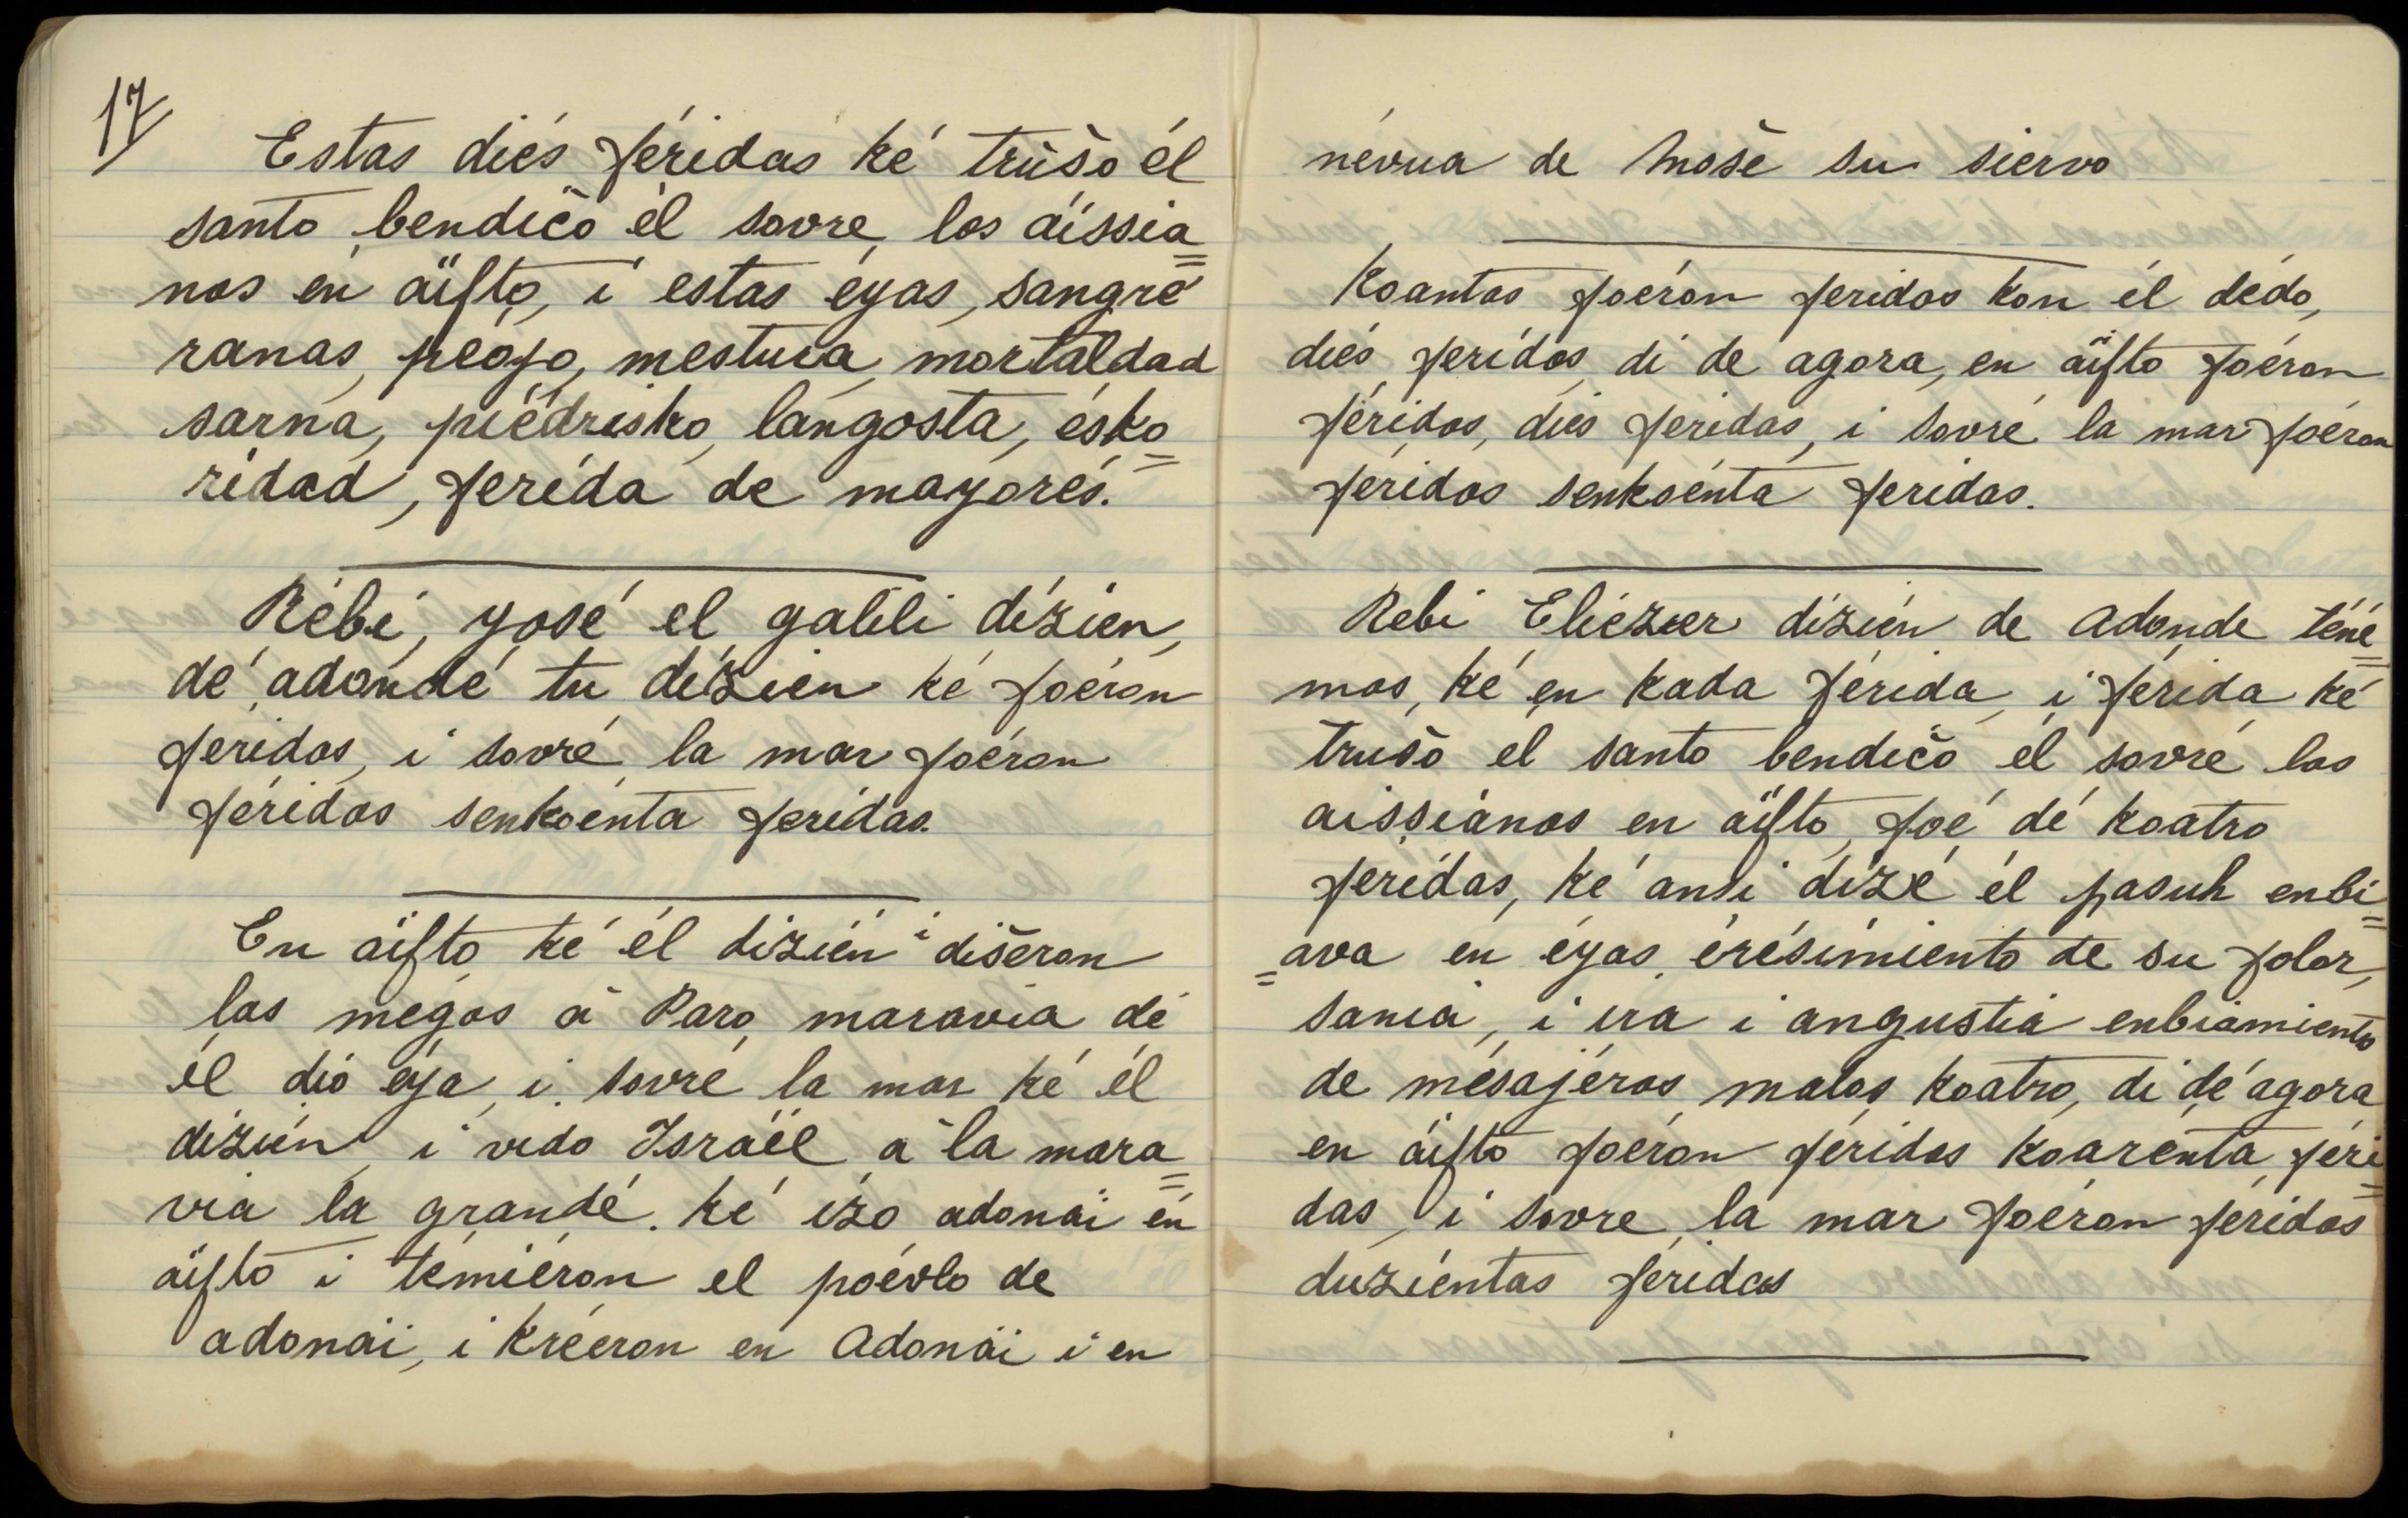 17
Estas diés féridas ké trušo él
santo bendičo él sovre los aïssia=
nos en aïfto, i estas éyas, sangré
ranas, peojo, mestura, mortaldad
sarna, piédrisko, langosta, ésko=
ridad, ferida de mayorés.
Rébi, yosé el galili dizien,
dé adondé tu dizien ké foéron
feridos, i sovré la mar foéron
féridos senkoénta feridas.
En aïfto ké él dizién i dišeron
los megos a Paro, maravia dé
él dio éja, i sovré la mar ké él
dizién i vido Israël a la mara=
via la grandé. ké izo adonaï én
aïfto i témiéron el poévlo de
adonaï, i kréeron en Adonaï i en
névua de Mošé su siervo
Koantos foéron feridos kon él dédo,
diés feridas di de agora, en aïfto foéron
féridos, diés feridas, i sovré la mar foéron
féridos senkoénta feridas.
Rebi Eliézer dizién de adonde téné=
mos, ké en kada férida, i férida ké
trušo el santo bendičo él sovré los
aissiános en aïfto, foé dé koatro
feridas, ké ansi dizé él pasuk enbi=
=ava en éyas érésimiento de su folor,
sania, i ira i angustia enbiamiento
de mésajéros malos koatro, di dé agora
en aïfto foéron féridos koarénta féri=
das, i sovre la mar foéron féridos
duziéntas féridas